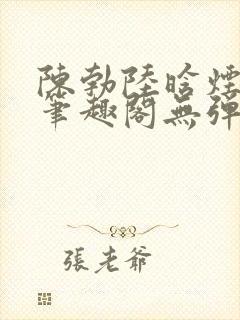 陳勃陸晗煙
筆趣閣無彈
張老爺